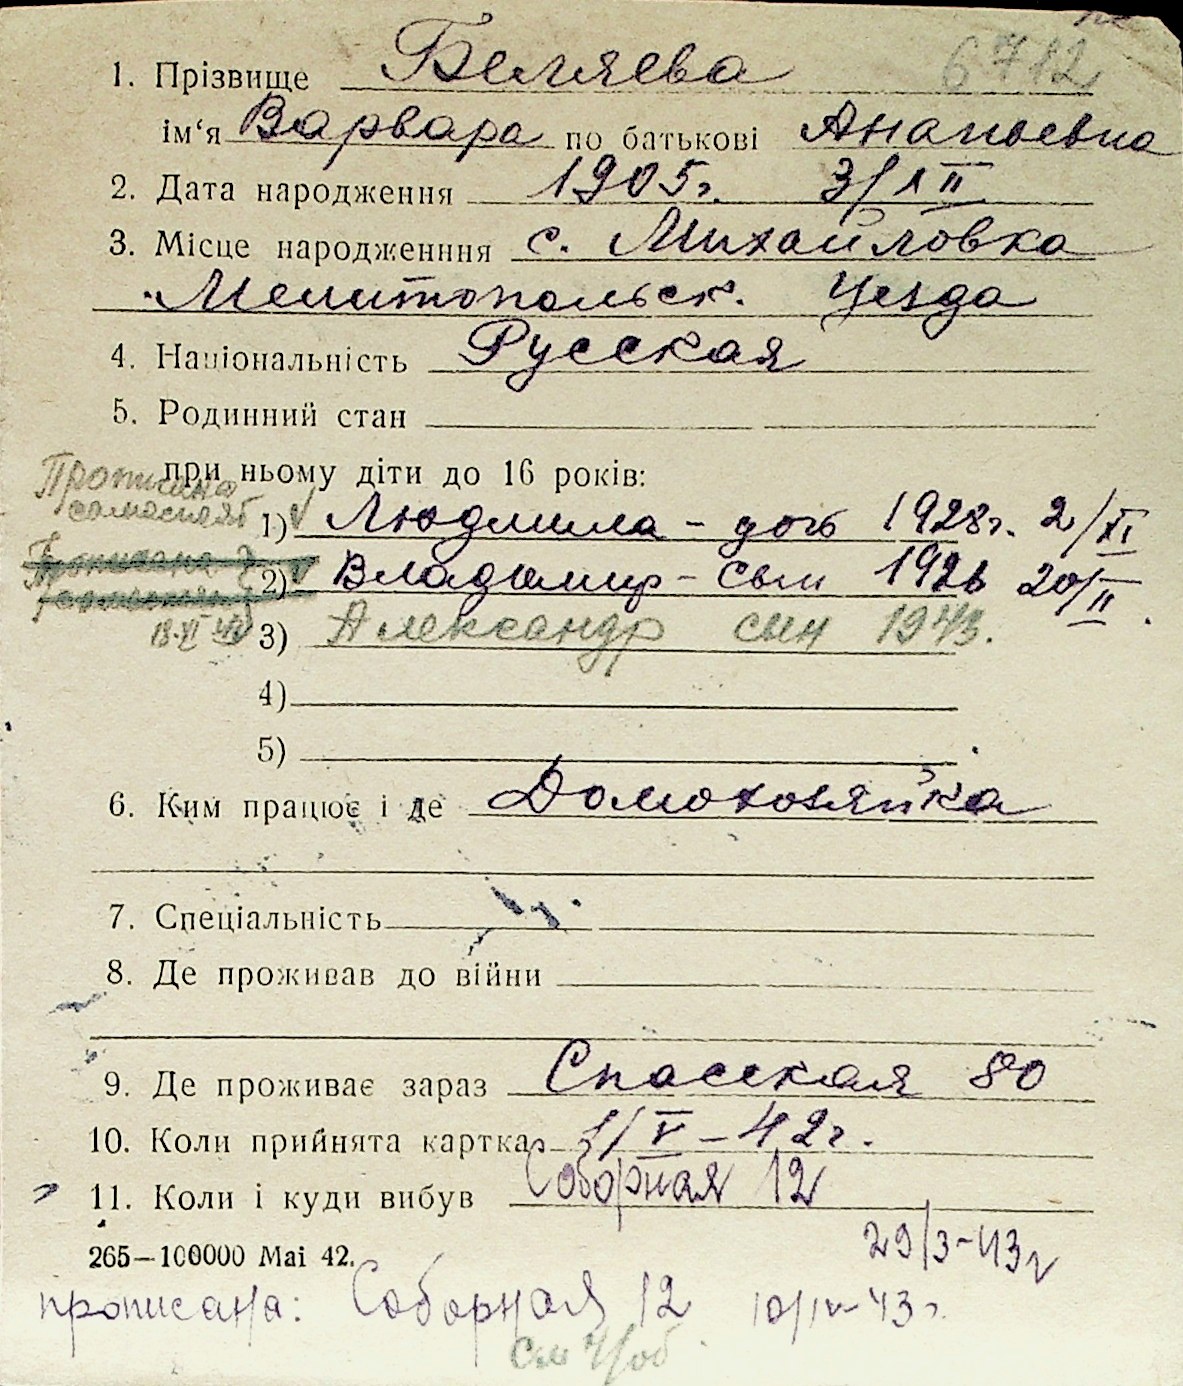 6712
1. Прізвище Беляева
ім‘я Варвара по батькові Ананьевна
2. Дата народження 1905г. 3/XII
3. Місце народженння с. Михайловка
Мелитопольск. Уезда
4. Національність Русская
5. Родинний стан
при ньому діти до 16 років:
Прописана
самостоят
1) Людмила - дочь 1928г. 2/XI
Прописана
2) Владимир - сын 1926 20/II
18-XI
3) Александр сын 1943.
4)
5)
6. Ким працює і де Домохозяйка
7. Спеціальність
8. Де проживав до війни
9. Де проживає зараз Спасская 80
10. Коли прийнята картка 1/V - 42г.
11. Коли і куди вибув Соборная 12
29/3-43г
265—100000 Mai 42.
прописана: Соборная 12 10/IV-43г.
см